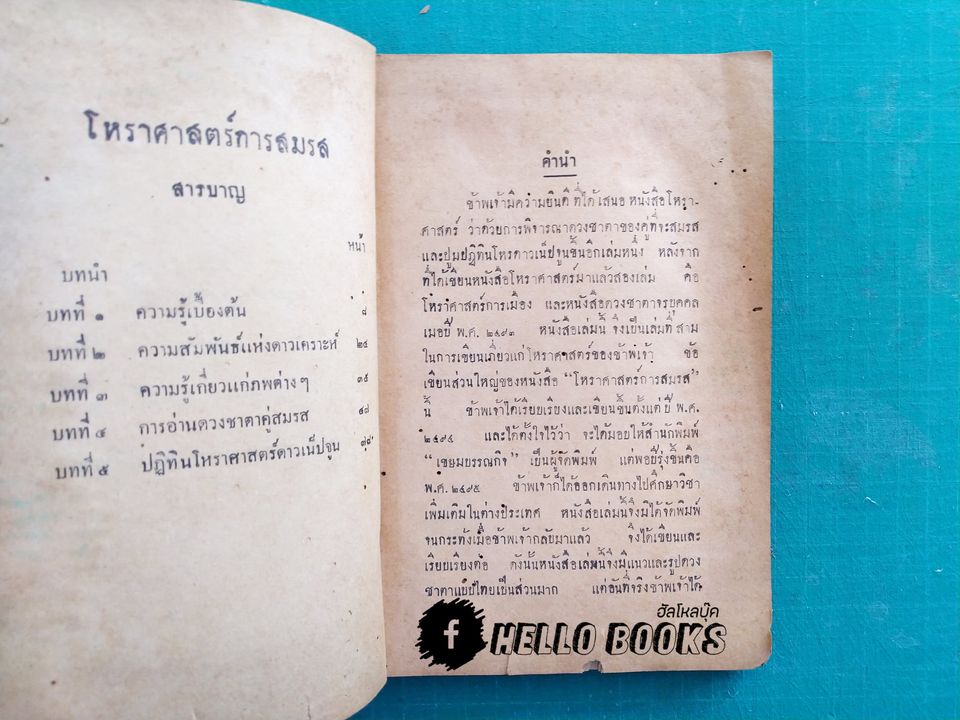 โหราศาสตร์การสมรส
สารบาญ
หน้า
บทนำ
บทที่ ๑ ความรู้เบื้องต้น ๘
บทที่ ๒ ความสัมพันธ์แห่งดาวเคราะห์ ๒๔
บทที่ ๓ ความรู้เกี่ยวแก่ภพต่างๆ ๓๕
บทที่ ๔ การอ่านดวงชาตาคู่สมรส ๔๘
บทที่ ๕ ปฏิทินโหราศาสตร์ดาวเน็ปจูน
คำนำ
ข้าพเจ้ามีความยินดี ที่ได้เสนอ หนังสือโหรา-
ศาสตร์ ว่าด้วยการพิจารณาดวงชาตาของคู่ที่จะสมรส
และปูมปฏิทินโหรดาวเน็ปจูนขึ้นอีกเล่มหนึ่ง หลังจาก
ที่ได้เขียนหนังสือโหราศาสตร์มาแล้วสองเล่ม คือ
โหราศาสตร์การเมือง และหนังสือดวงชาตาจรบุคคล
เมื่อปี พ.ศ. ๒๔๙๓ หนังสือเล่มนี้ จึงเป็นเล่มที่ สาม
ในการเขียนเกี่ยวแก่โหราศาสตร์ของข้าพเจ้า ข้อ
เขียนส่วนใหญ่ของหนังสือ “โหราศาสตร์การสมรส”
นี้ ข้าพเจ้าได้เรียบเรียงและเขียนขึ้นตั้งแต่ ปี พ.ศ.
๒๔๙๔ และได้ตั้งใจไว้ว่า จะได้มอบให้สำนักพิมพ์
“เขษมบรรณกิจ” เป็นผู้จัดพิมพ์ แต่พอปีรุ่งขึ้นคือ
พ.ศ. ๒๔๙๕ ข้าพเจ้าก็ได้ออกเดินทางไปศึกษาวิชา
เพิ่มเติมในต่างประเทศ หนังสือเล่มนี้จึงมิได้จัดพิมพ์
จนกระทั่งเมื่อข้าพเจ้ากลับมาแล้ว จึงได้เขียนและ
เรียบเรียงต่อ ดังนั้นหนังสือเล่มนี้จึงมีแนวและรูปดวง
ชาตาแบบไทยเป็นส่วนมาก แต่อันที่จริงข้าพเจ้าได้
ฮัลโหลบุ๊ค
f HELLO BOOKS